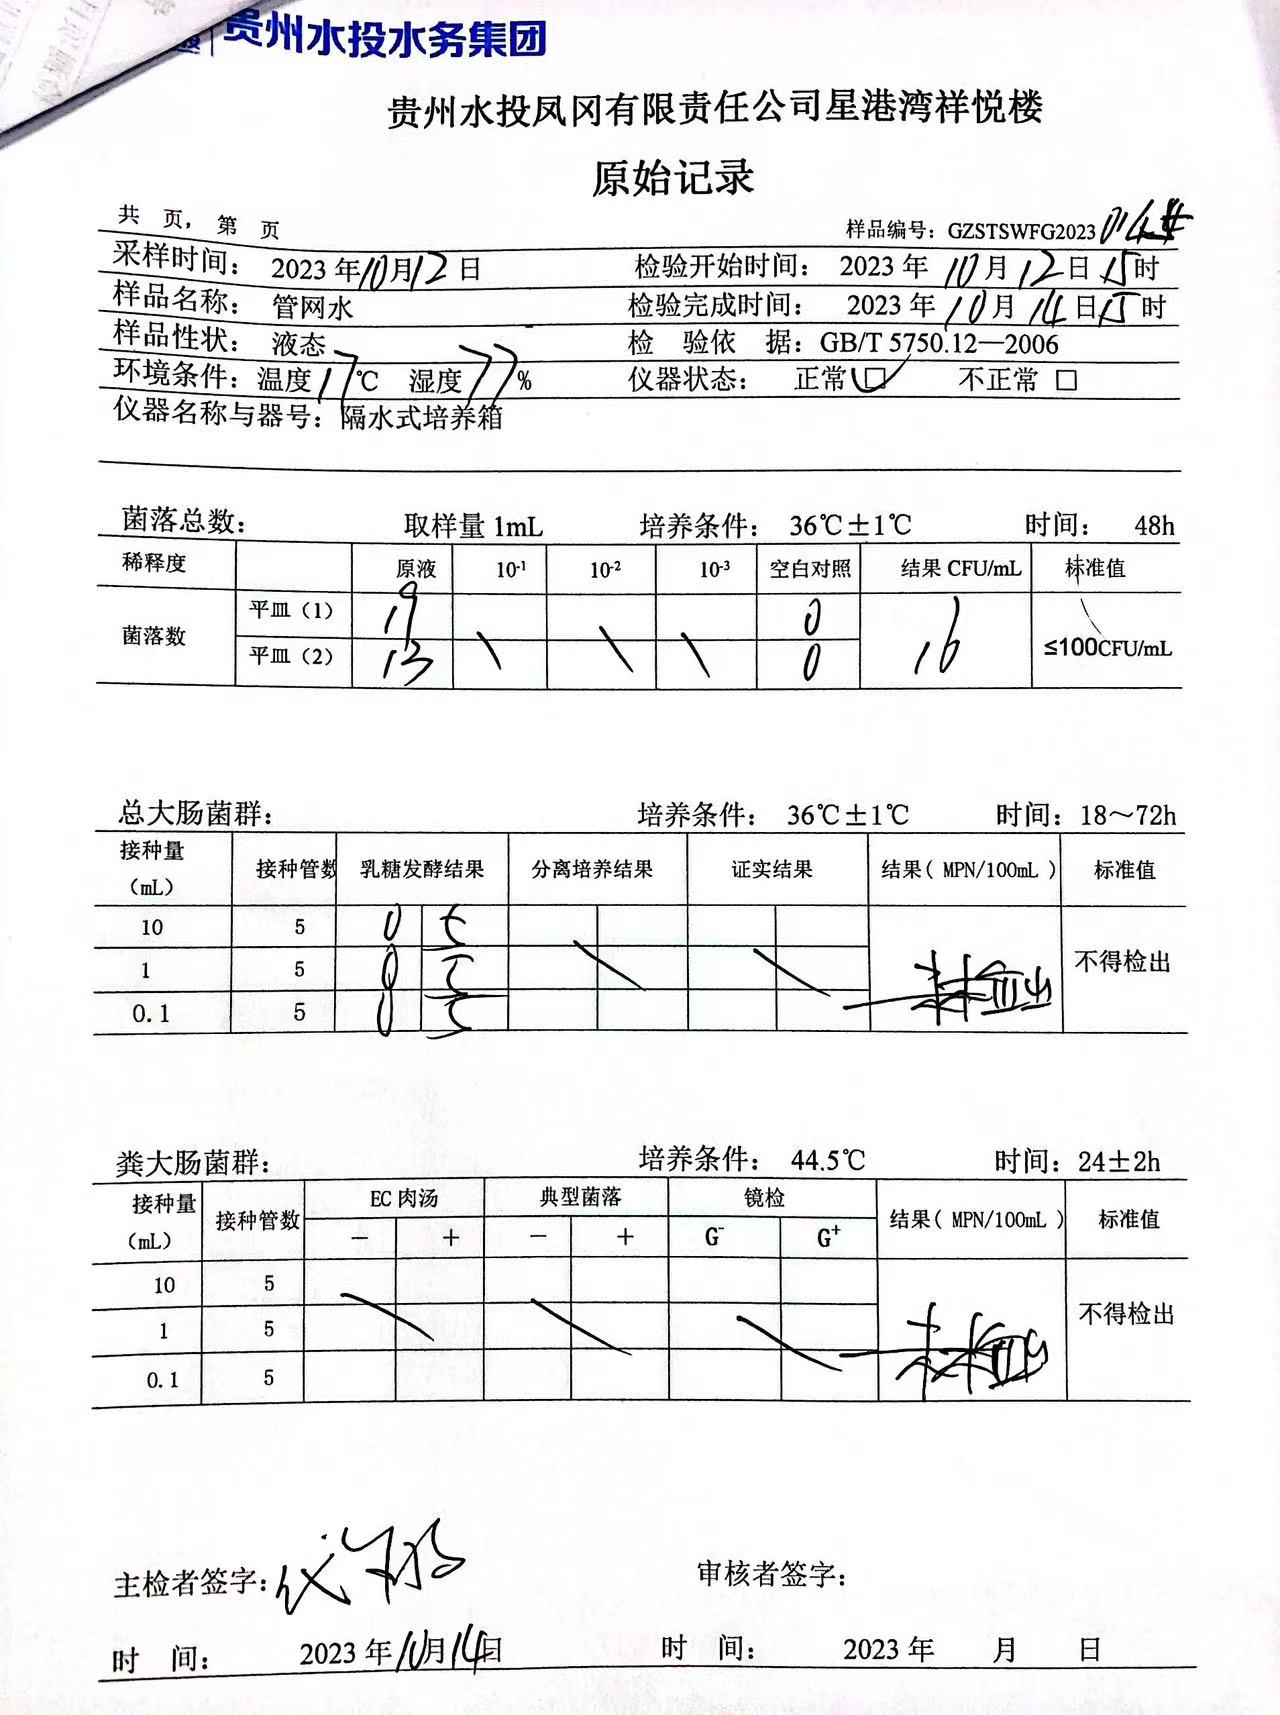 贵州水投水务集团
贵州水投凤冈有限责任公司星港湾祥悦楼
原始记录
共 页，第 页 样品编号：GZSTSWFG2023
采样时间： 2023年10月12日 检验开始时间： 2023年10月12日15时
样品名称： 管网水 检验完成时间： 2023年10月14日15时
样品性状： 液态 检 验依 据：GB/T 5750.12—2006
环境条件：温度17℃ 湿度77% 仪器状态： 正常☑ 不正常□
仪器名称与器号：隔水式培养箱
菌落总数： 取样量1mL 培养条件： 36℃±1℃ 时间： 48h
稀释度 原液 10-1 10-2 10-3 空白对照 结果CFU/mL 标准值
菌落数 平皿（1） 19 \ \ \ 0 16 ≤100CFU/mL
平皿（2） 13 0
总大肠菌群： 培养条件： 36℃±1℃ 时间：18～72h
接种量（mL） 接种管数 乳糖发酵结果 分离培养结果 证实结果 结果（MPN/100mL） 标准值
10 5 0 5 未检出 不得检出
1 5 0 5
0.1 5 0 5
粪大肠菌群： 培养条件： 44.5℃ 时间：24±2h
接种量（mL） 接种管数 EC肉汤 典型菌落 镜检 结果（MPN/100mL） 标准值
－ ＋ － ＋ G- G+
10 5 未检出 不得检出
1 5
0.1 5
主检者签字： 审核者签字：
时 间： 2023年10月14日 时 间： 2023年 月 日